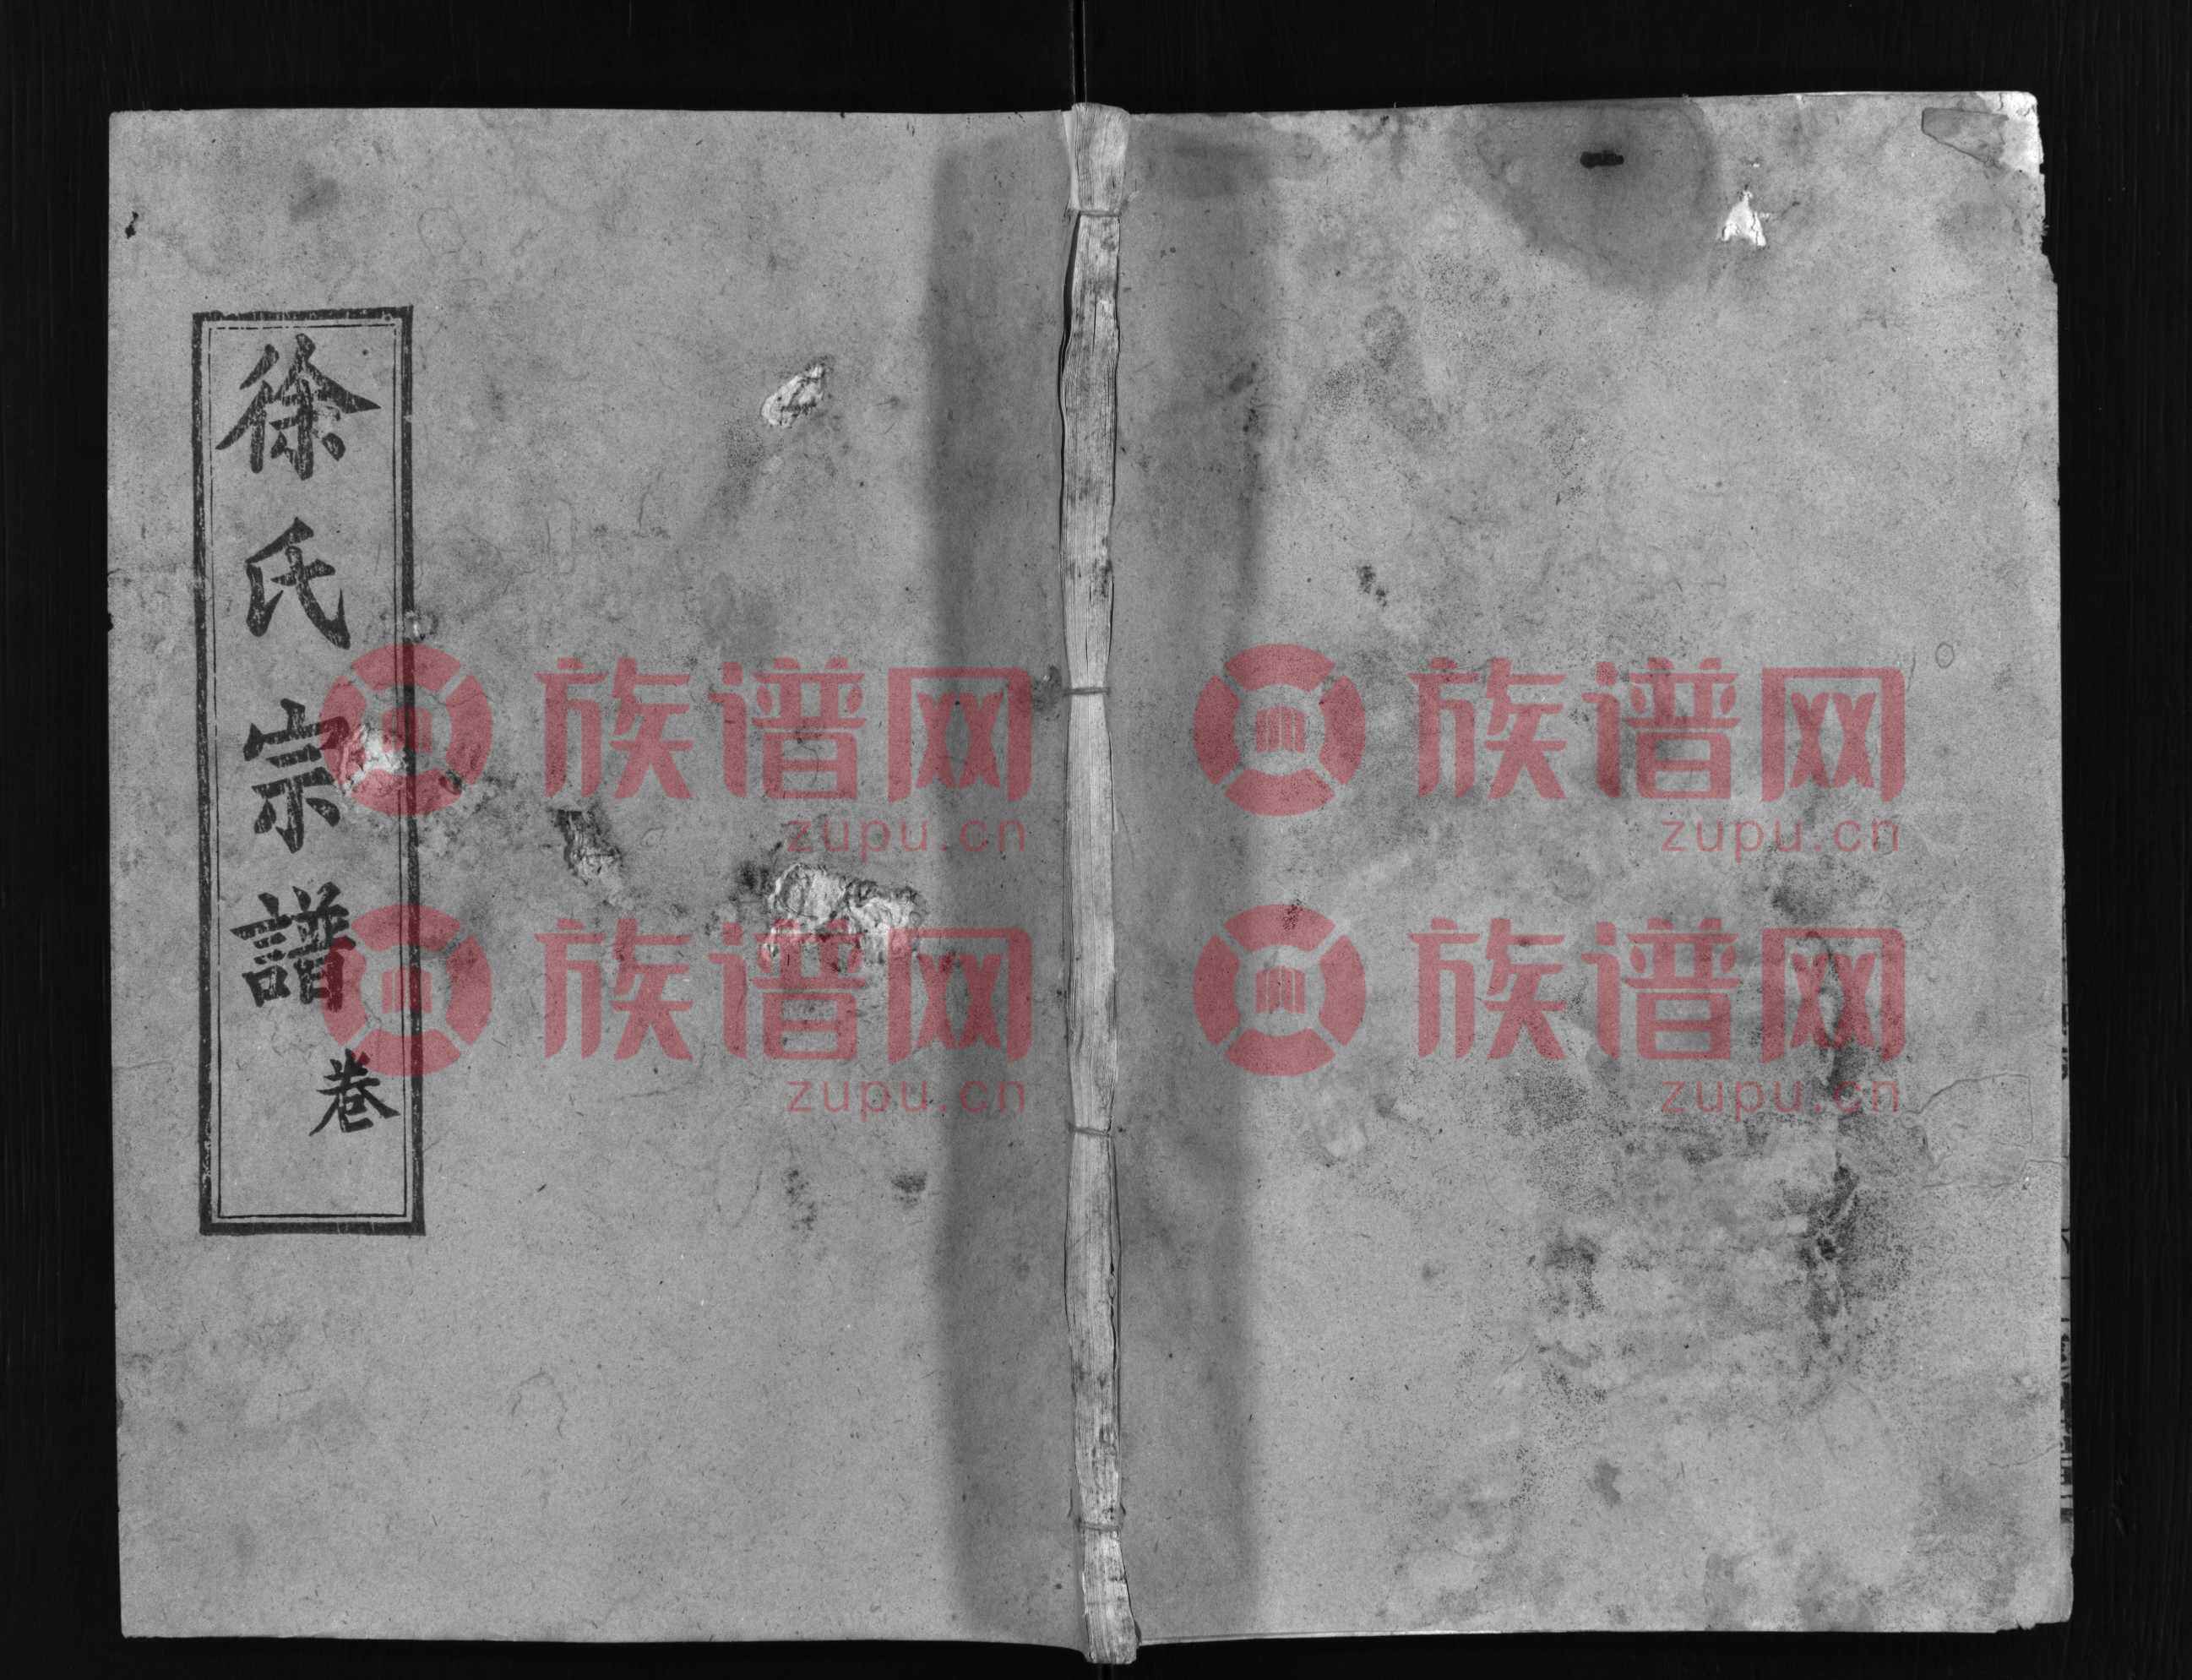 徐氏宗譜
卷
族谱网 族谱网
zupu.cn zupu.cn
族谱网 族谱网
zupu.cn zupu.cn